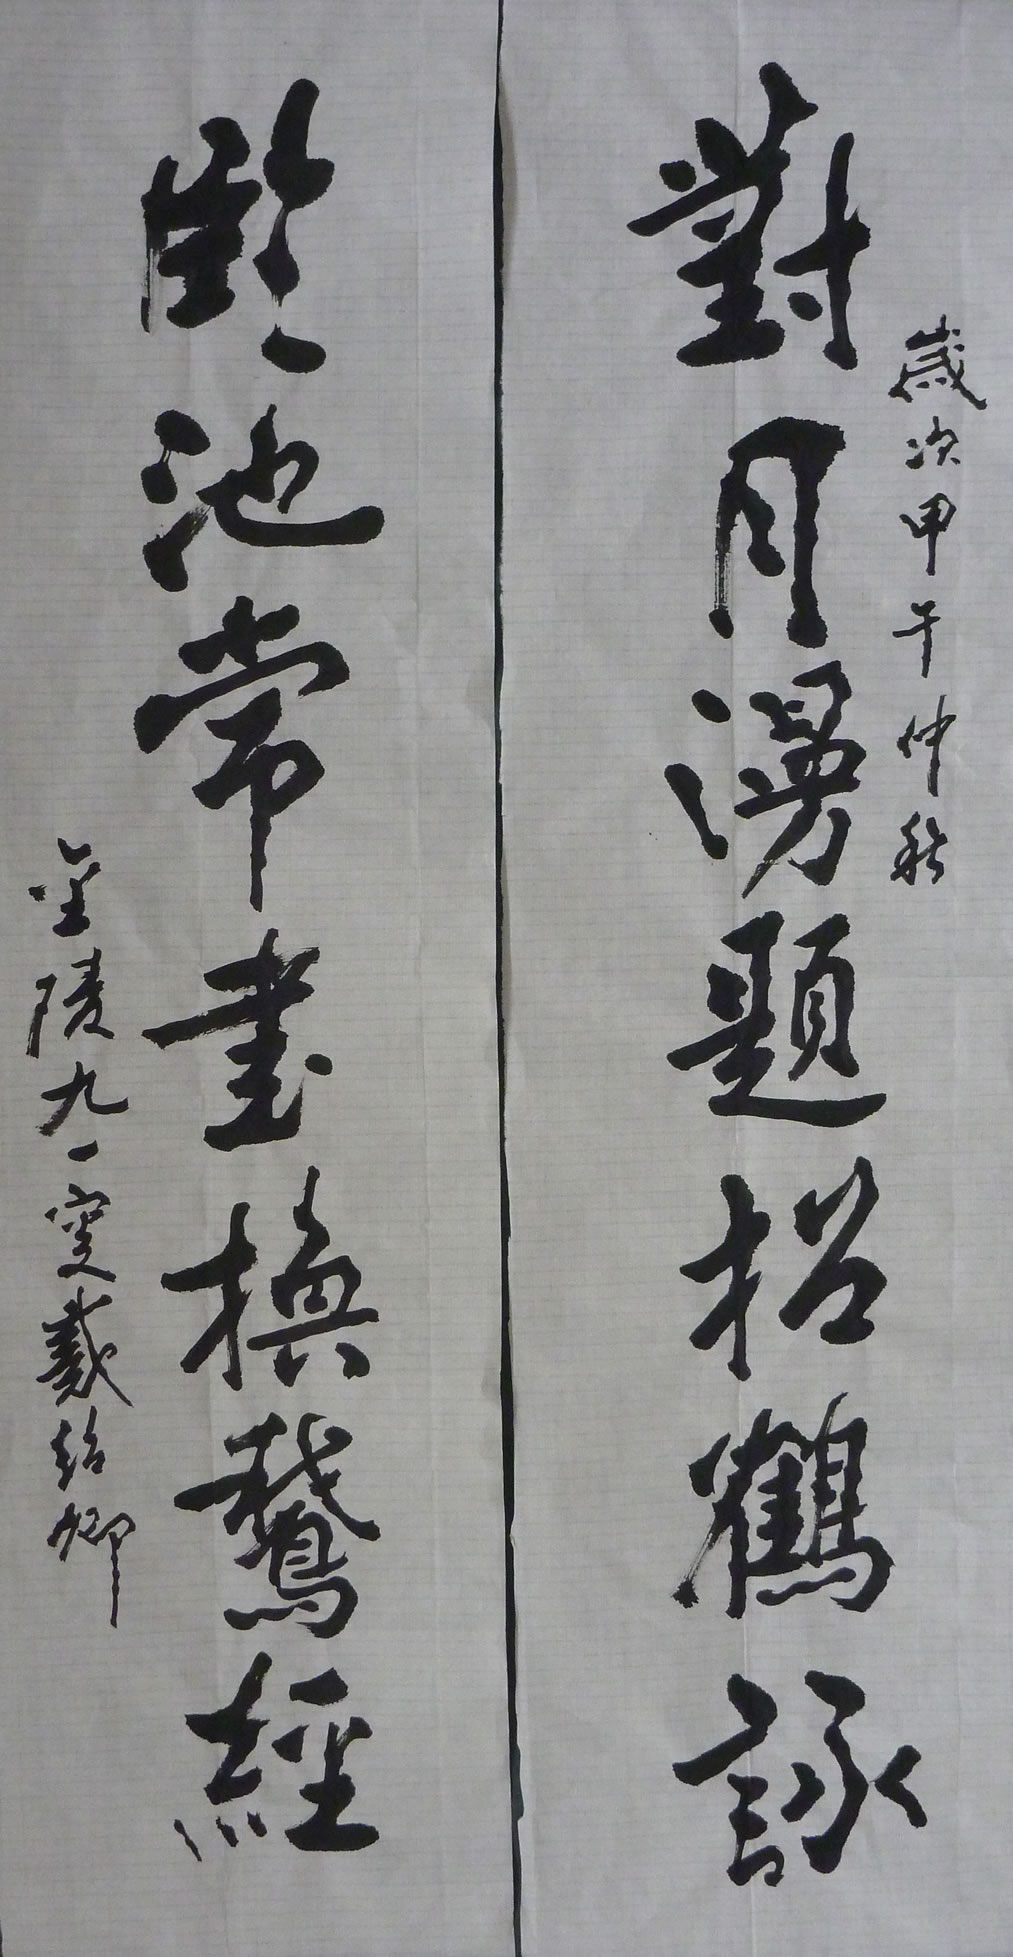 歲次甲午仲秋
對月漫題招鶴詠
臨池常書換鵞經
金陵九一叟戴紹卿